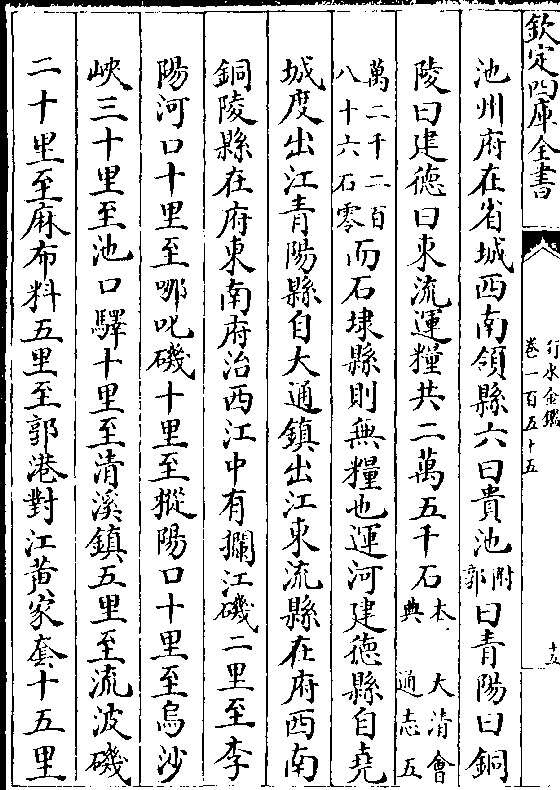 欽定四庫全書
行水金鑑
卷一百五十五
十五
池州府在省城西南領縣六曰貴池附郭曰青陽曰銅
陵曰建德曰東流運糧共二萬五千石大清會典本 通志五
萬二千二百八十六石零而石埭縣則無糧也運河建德縣自堯
城度出江青陽縣自大通鎮出江東流縣在府西南
銅陵縣在府東南府治西江中有攔江磯二里至李
陽河口十里至哪吒磯十里至樅陽口十里至烏沙
峽三十里至池口驛十里至清溪鎮五里至流波磯
二十里至麻布料五里至郭港對江黃家套十五里